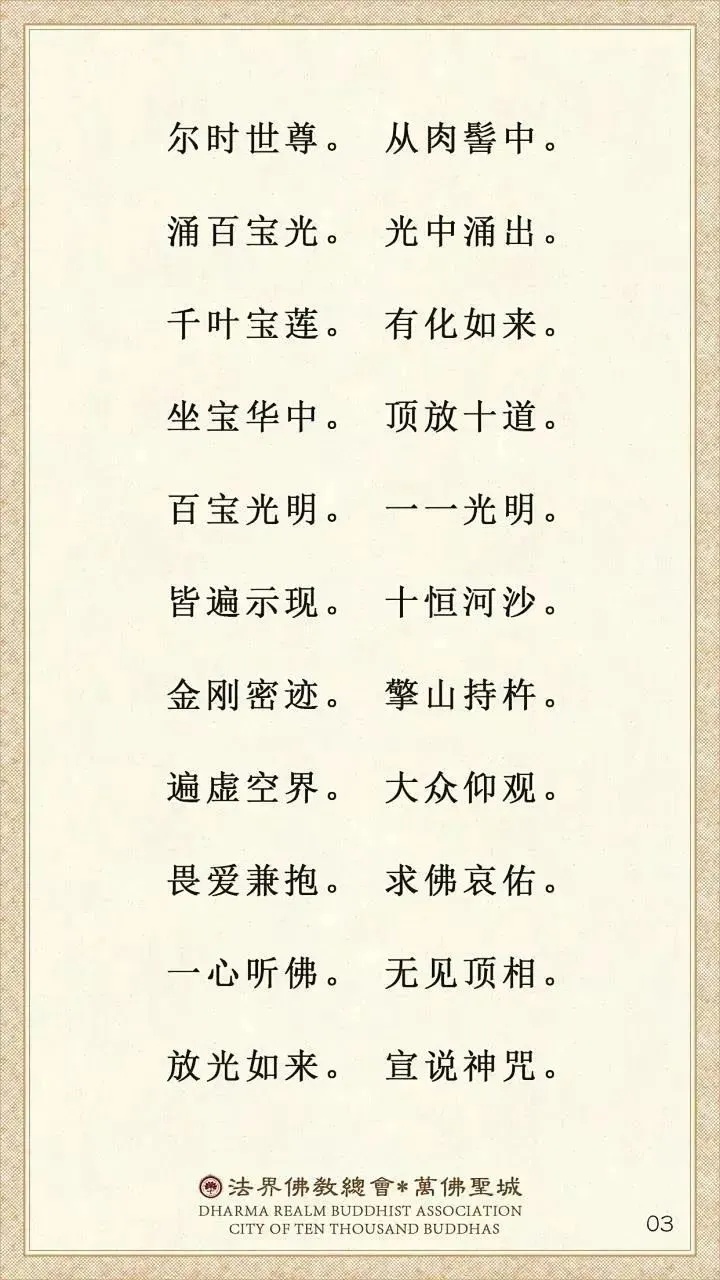 尔时世尊。 从肉髻中。
涌百宝光。 光中涌出。
千叶宝莲。 有化如来。
坐宝华中。 顶放十道。
百宝光明。 一一光明。
皆遍示现。 十恒河沙。
金刚密迹。 擎山持杵。
遍虚空界。 大众仰观。
畏爱兼抱。 求佛哀佑。
一心听佛。 无见顶相。
放光如来。 宣说神咒。
法界佛教總會*萬佛聖城
DHARMA REALM BUDDHIST ASSOCIATION
CITY OF TEN THOUSAND BUDDHAS
03